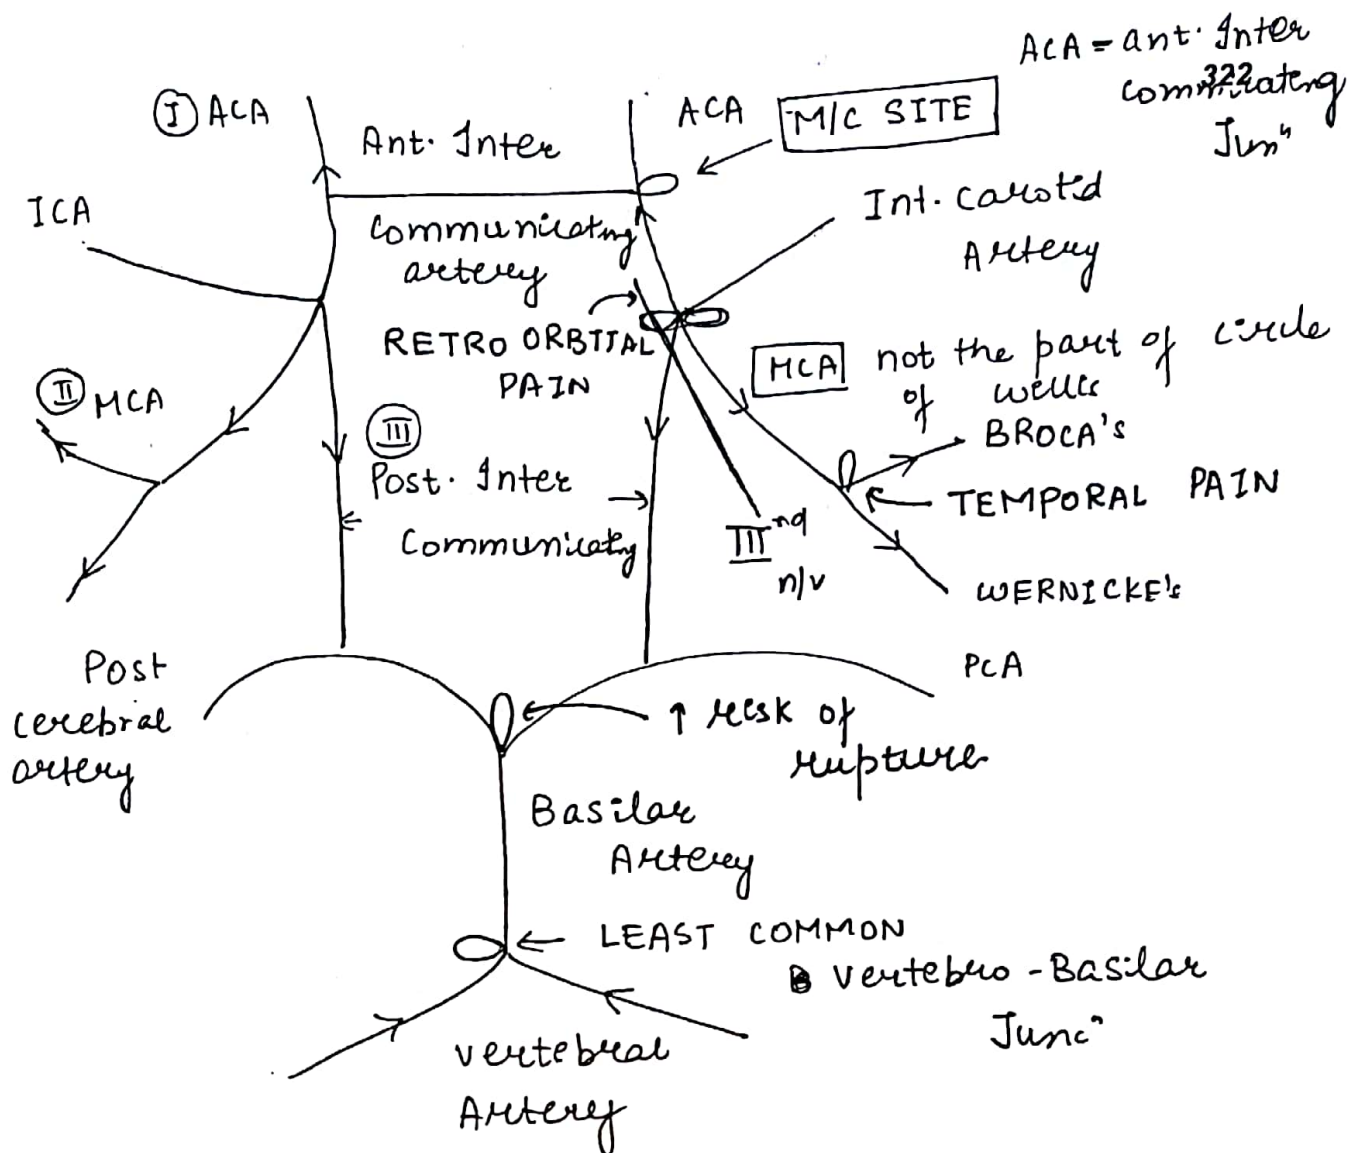 ACA = ant. Inter
322
Junⁿ
Ⓘ ACA
ACA
M/C SITE
Ant. Inter
Communicatng
artery
ICA
Int. Carotid
Artery
RETRO ORBITAL
PAIN
MCA not the part of circle
of willis
Ⓘ︎Ⓘ MCA
BROCA's
III
Post. Inter
Communicatg
TEMPORAL PAIN
III nd
n/v
WERNICKE's
Post
cerebral
artery
PCA
↑ risk of
rupture
Basilar
Artery
LEAST COMMON
vertebro - Basilar
Juncⁿ
vertebral
Artery